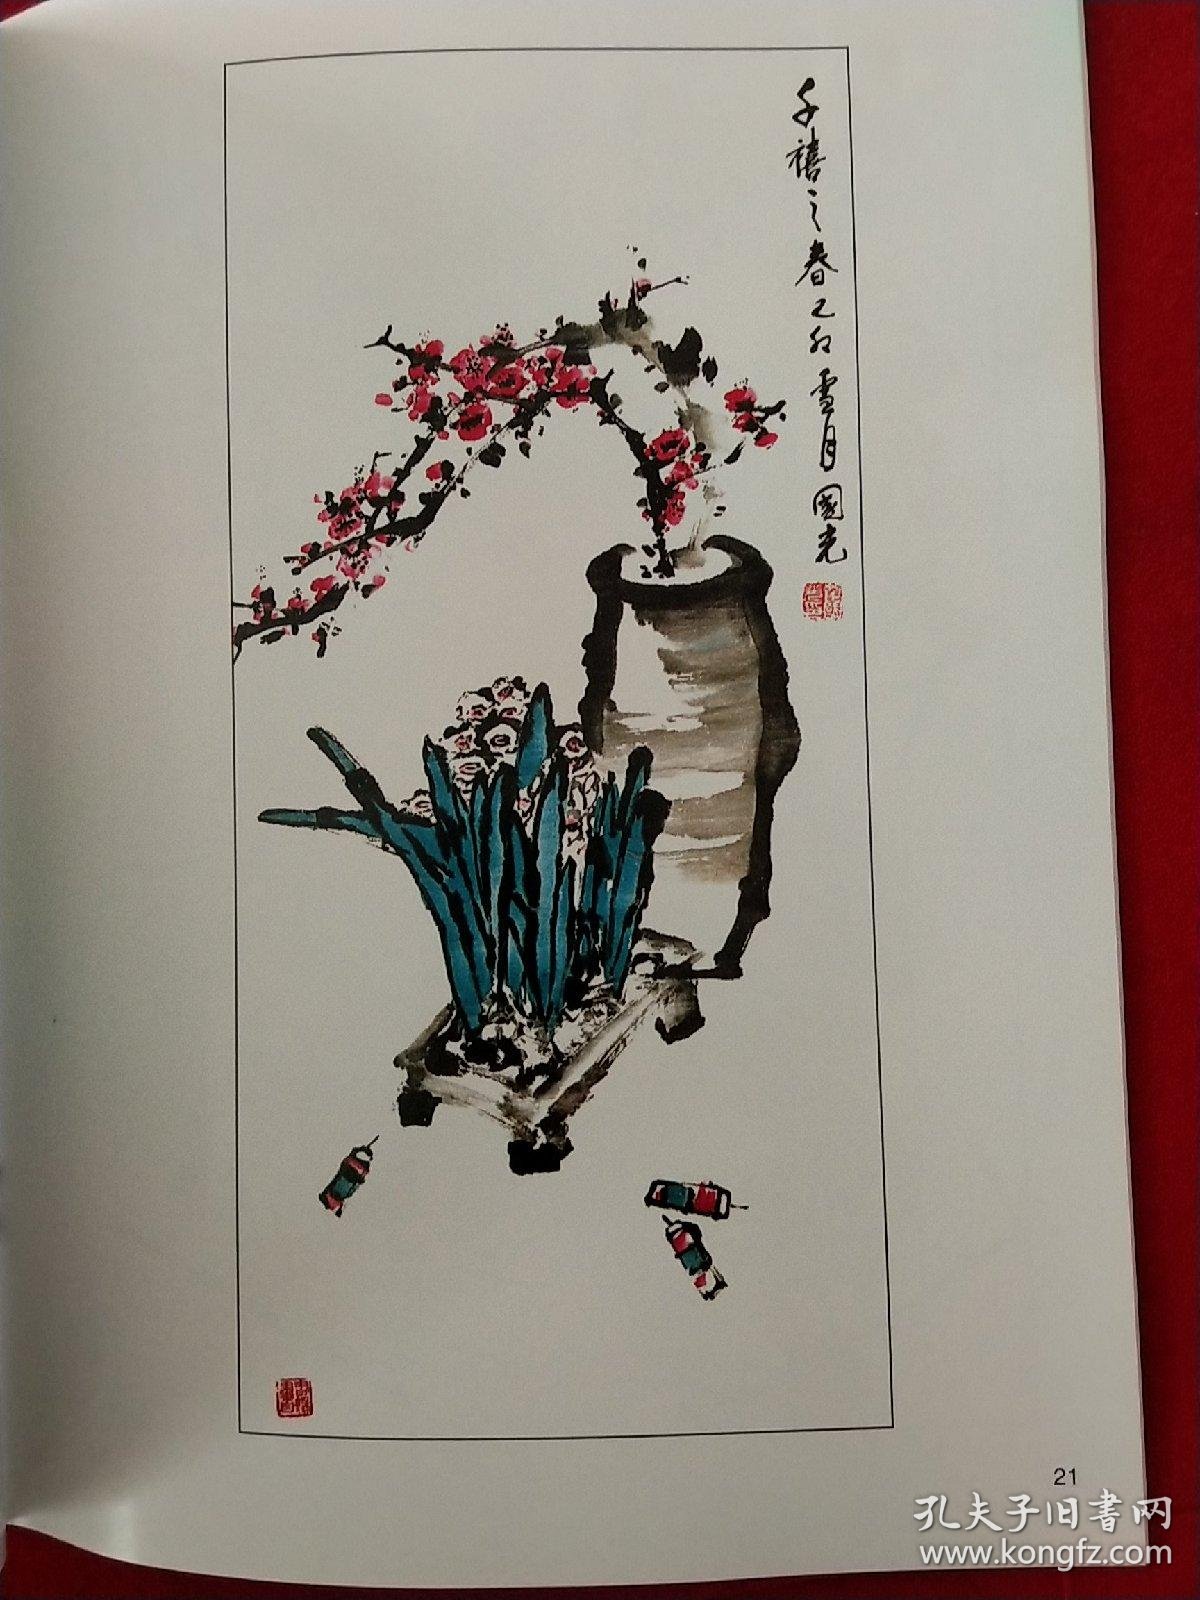 千禧之春己卯雪月國光
21
孔夫子旧书网
www.kongfz.com